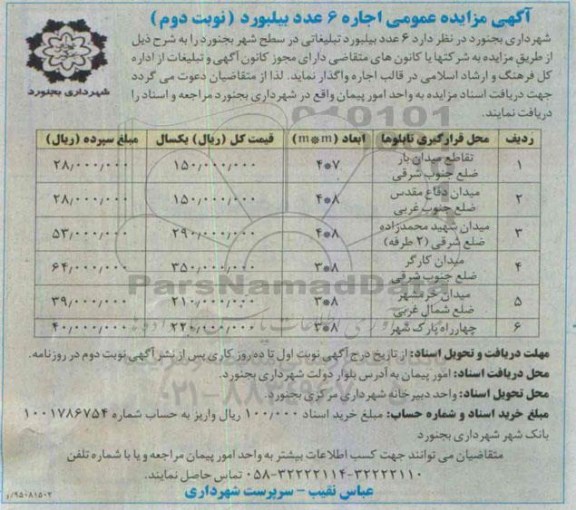 آگهی مزایده عمومی اجاره ۶ عدد بیلبورد (نوبت دوم)
شهرداری بجنورد در نظر دارد ۶ عدد بیلبورد تبلیغاتی در سطح شهر بجنورد را به شرح ذیل
از طریق مزایده به شرکتها یا کانون های متقاضی دارای مجوز کانون آگهی و تبلیغات از اداره
کل فرهنگ و ارشاد اسلامی در قالب اجاره واگذار نماید. لذا از متقاضیان دعوت می گردد
جهت دریافت اسناد مزایده به واحد امور پیمان واقع در شهرداری بجنورد مراجعه و اسناد را
دریافت نمایند.
شهرداری بجنورد
ردیف محل قرارگیری تابلوها ابعاد (m*m) قیمت کل (ریال) یکسال مبلغ سپرده (ریال)
۱ تقاطع میدان بار ضلع جنوب شرقی ۴*۷ ۱۵۰/۰۰۰/۰۰۰ ۲۸/۰۰۰/۰۰۰
۲ میدان دفاع مقدس ضلع جنوب غربی ۴*۸ ۱۵۰/۰۰۰/۰۰۰ ۲۸/۰۰۰/۰۰۰
۳ میدان شهید محمدزاده ضلع شرقی (۲ طرفه) ۴*۸ ۲۹۰/۰۰۰/۰۰۰ ۵۳/۰۰۰/۰۰۰
۴ میدان کارگر ضلع جنوب شرقی ۳*۸ ۳۵۰/۰۰۰/۰۰۰ ۶۴/۰۰۰/۰۰۰
۵ میدان خرمشهر ضلع شمال غربی ۳*۸ ۲۱۰/۰۰۰/۰۰۰ ۳۹/۰۰۰/۰۰۰
۶ چهارراه پارک شهر ۳*۸ ۲۲۰/۰۰۰/۰۰۰ ۴۰/۰۰۰/۰۰۰
ParsNamadData
مهلت دریافت و تحویل اسناد: از تاریخ درج آگهی نوبت اول تا ده روز کاری پس از نشر آگهی نوبت دوم در روزنامه.
محل دریافت اسناد: امور پیمان به آدرس بلوار دولت شهرداری بجنورد.
محل تحویل اسناد: واحد دبیرخانه شهرداری مرکزی بجنورد.
مبلغ خرید اسناد و شماره حساب: مبلغ خرید اسناد ۱۰۰/۰۰۰ ریال واریز به حساب شماره ۱۰۰۱۷۸۶۷۵۴
بانک شهر شهرداری بجنورد
متقاضیان می توانند جهت کسب اطلاعات بیشتر به واحد امور پیمان مراجعه و یا با شماره تلفن
۰۵۸-۳۲۲۲۲۱۱۴-۳۲۲۲۲۱۱۰ تماس حاصل نمایند.
عباس نقیب - سرپرست شهرداری
۹۵۰۸۱۵۰۲/ر